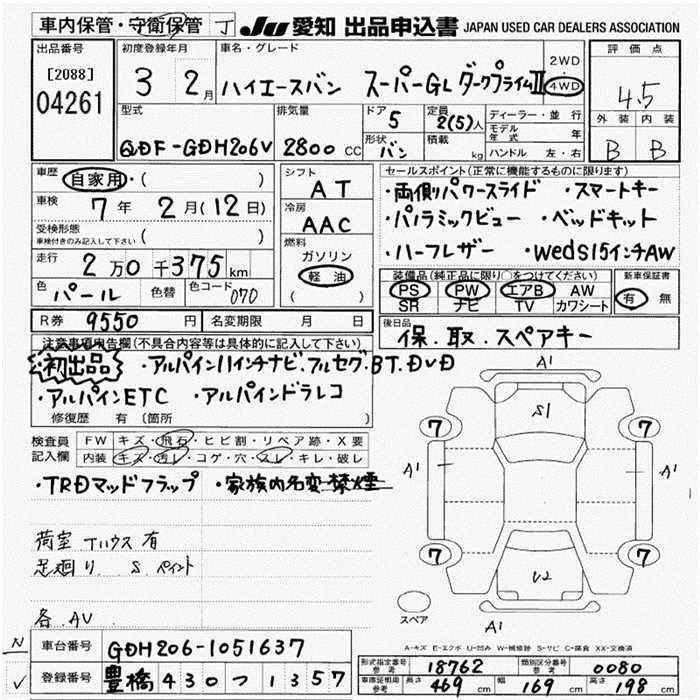 車内保管・守衛保管 丁 JU 愛知 出品申込書 JAPAN USED CAR DEALERS ASSOCIATION
出品番号 [2088] 04261
初度登録年月 3 2月
車名・グレード ハイエースバン スーパーGL ダークプライムII
2WD・4WD
評価点 4.5
外装 B 内装 B
型式 QDF-GDH206V
排気量 2800 CC
ドア 5 形状 バン
定員 2(5)人 積載 kg
ディーラー・並行
モデル年式 年
ハンドル 左・右
車歴 自家用・( )
車検 7年 2月(12日)
受検形態 車検付きのみ記入して下さい ( )
走行 2万0千375km
色 パール 色替 色コード 070
シフト AT
冷房 AAC
燃料 ガソリン 軽油
セールスポイント(正常に機能するものに限ります)
・両側パワースライド ・スマートキー
・パノラミックビュー ・ベッドキット
・ハーフレザー ・Weds15インチAW
装備品(純正品に限り○をつけてください) 新車保証書
PS PW エアB AW 有・無
SR ナビ TV カワシート
R券 9550 円 名変期限 月 日
後日品 保.取.スペアキー
注意事項申告欄(不具合内容等は具体的に記入して下さい)
初出品 ・アルパイン11インチナビ.フルセグ.BT.DVD
・アルパインETC ・アルパインドラレコ
修復歴 有 (箇所 )
検査員記入欄 FW キズ・飛石・ヒビ割・リペア跡・X要
内装 キズ・汚レ・コゲ・穴・スレ・キレ・破レ
・TRDマッドフラップ ・家族内名変 禁煙
荷室 Tハウス 有
足廻り S ペイント
各.AV
A1
S1
7 7
A1 A1
7 7
U2
スペア
A1
A-キズ E-エクボ U-凹み W-補修跡 S-サビ C-腐食 XX-交換済
N 車台番号 GDH206-1051637
✓ 登録番号 豊橋 430 つ 1357
形式指定番号 参考 18762 類別区分番号 参考 0080
車庫証明用 参考 長さ 469 cm 幅 169 cm 高さ 198 cm